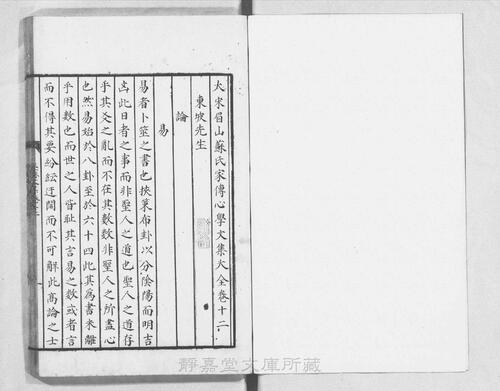 大宋眉山蘇氏家傳心學文集大全卷十二
東坡先生
論
易
易者卜筮之書也挾策布卦以分隂陽而明吉
凶此日者之事而非聖人之道也聖人之道存
乎其爻之亂而不在其數數非聖人之所盡心
也然易始於八卦至於六十四此其為書未離
乎用數也而世之人皆耻其言易之數或者言
而不得其要紛紜迂闊而不可解此髙論之士
靜嘉堂文庫所藏